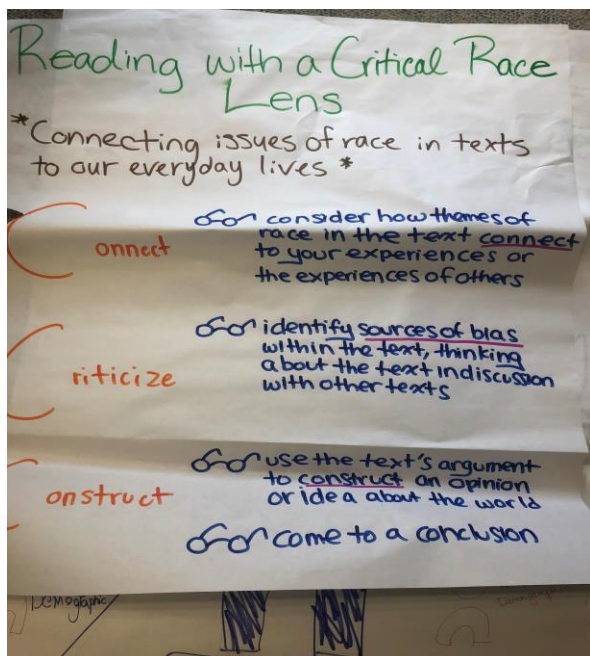 Reading with a Critical Race
Lens
*Connecting issues of race in texts
to our everyday lives *
Connect
consider how themes of
race in the text connect
to your experiences or
the experiences of others
Criticize
identify sources of bias
within the text, thinking
about the text in discussion
with other texts
Construct
use the text's argument
to construct an opinion
or idea about the world
come to a conclusion
Demographic